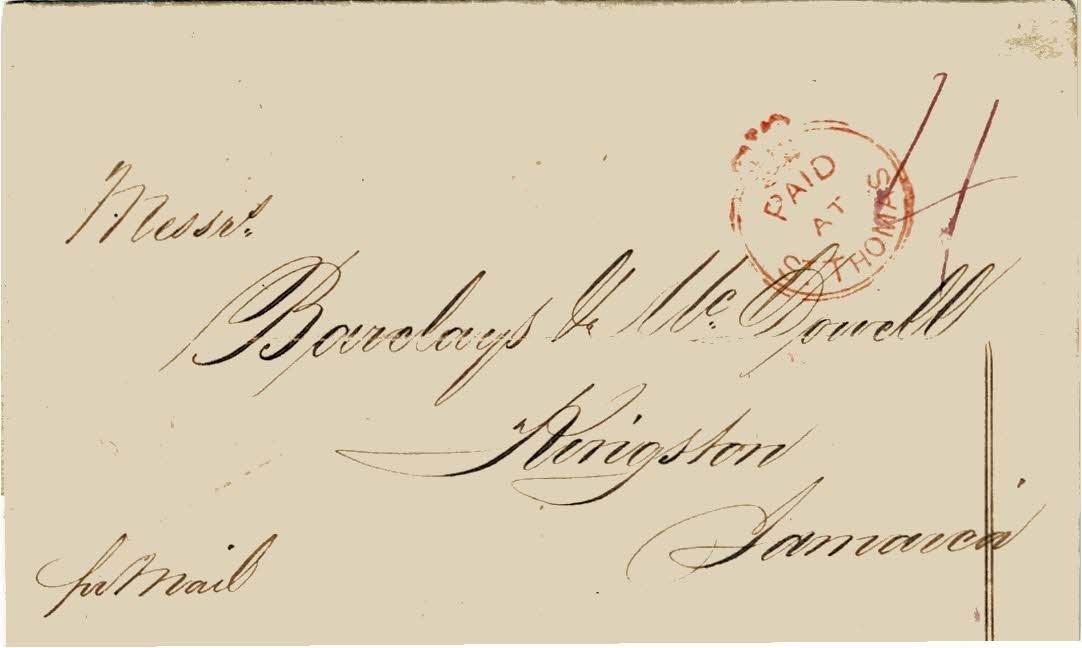 PAID
AT
ST THOMAS
Messrs.
Barclays & Mc. Dowell
Kingston
Jamaica
pr Mail